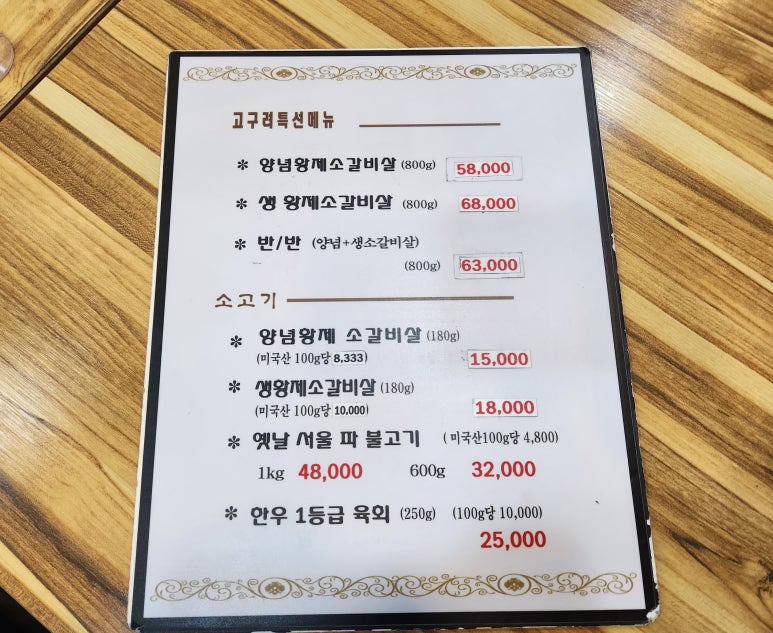 고구려특선메뉴
* 양념왕제소갈비살 (800g) 58,000
* 생 왕제소갈비살 (800g) 68,000
* 반/반 (양념+생소갈비살)
(800g) 63,000
소고기
* 양념왕제 소갈비살 (180g)
(미국산 100g당 8,333) 15,000
* 생왕제소갈비살 (180g)
(미국산 100g당 10,000) 18,000
* 옛날 서울 파 불고기 (미국산100g당 4,800)
1kg 48,000 600g 32,000
* 한우 1등급 육회 (250g) (100g당 10,000)
25,000